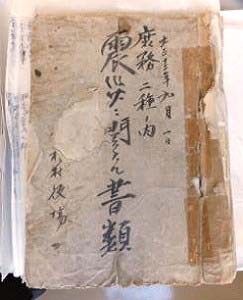 年九月一日
庶務二種ノ内
震災ニ関スル書類
村役場